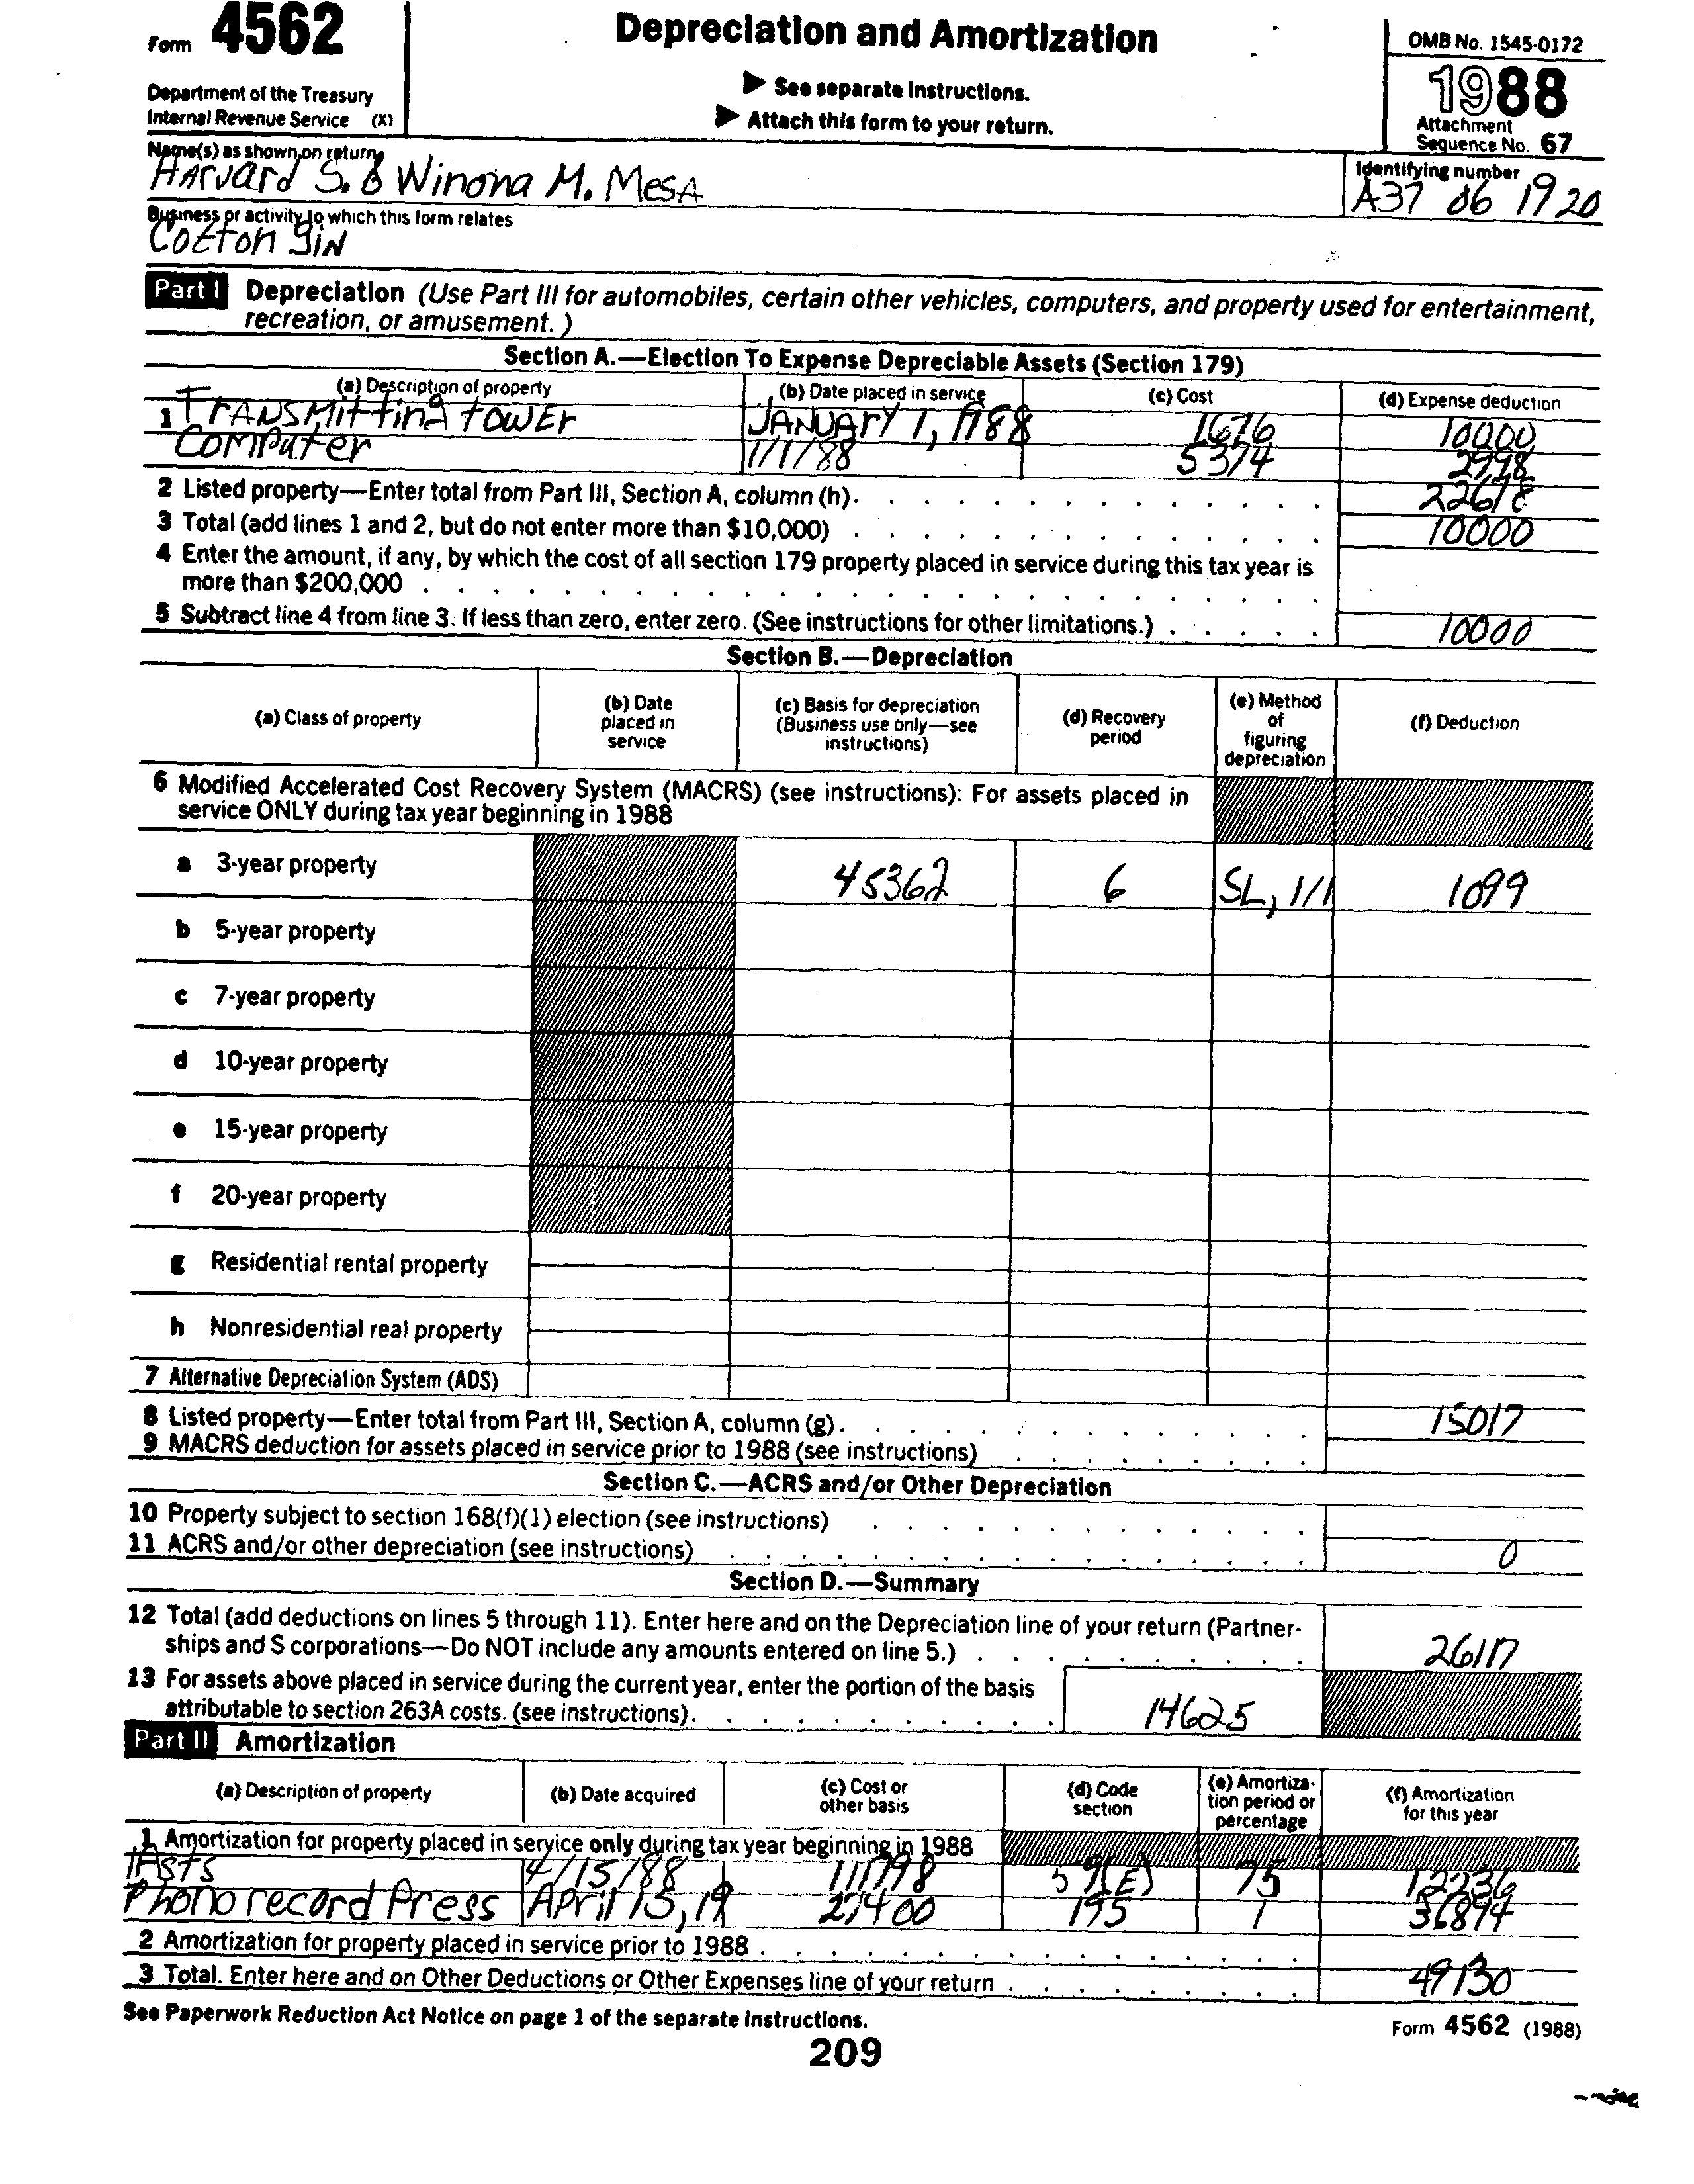 Form 4562
Department of the Treasury
Internal Revenue Service (X)
Depreciation and Amortization
▶ See separate Instructions.
▶ Attach this form to your return.
OMB No. 1545-0172
1988
Attachment
Sequence No. 67
Name(s) as shown on return
HArvard S. & Winona M. MesA
Identifying number
A37 06 1920
Business or activity to which this form relates
Cotton giN
Part I Depreciation (Use Part III for automobiles, certain other vehicles, computers, and property used for entertainment,
recreation, or amusement.)
Section A.—Election To Expense Depreciable Assets (Section 179)
(a) Description of property (b) Date placed in service (c) Cost (d) Expense deduction
1 TrANSMitting towEr JANUARY 1, 1988 1676 10000
Computer 1/1/88 5374 2998
2 Listed property—Enter total from Part III, Section A, column (h). 22618
3 Total (add lines 1 and 2, but do not enter more than $10,000) 10000
4 Enter the amount, if any, by which the cost of all section 179 property placed in service during this tax year is
more than $200,000
5 Subtract line 4 from line 3. If less than zero, enter zero. (See instructions for other limitations.) 10000
Section B.—Depreciation
(a) Class of property (b) Date placed in service (c) Basis for depreciation (Business use only—see instructions) (d) Recovery period (e) Method of figuring depreciation (f) Deduction
6 Modified Accelerated Cost Recovery System (MACRS) (see instructions): For assets placed in
service ONLY during tax year beginning in 1988
a 3-year property 45362 6 SL, 1/1 1099
b 5-year property
c 7-year property
d 10-year property
e 15-year property
f 20-year property
g Residential rental property
h Nonresidential real property
7 Alternative Depreciation System (ADS)
8 Listed property—Enter total from Part III, Section A, column (g). 15017
9 MACRS deduction for assets placed in service prior to 1988 (see instructions)
Section C.—ACRS and/or Other Depreciation
10 Property subject to section 168(f)(1) election (see instructions)
11 ACRS and/or other depreciation (see instructions) 0
Section D.—Summary
12 Total (add deductions on lines 5 through 11). Enter here and on the Depreciation line of your return (Partner-
ships and S corporations—Do NOT include any amounts entered on line 5.) 26117
13 For assets above placed in service during the current year, enter the portion of the basis
attributable to section 263A costs. (see instructions). 14625
Part II Amortization
(a) Description of property (b) Date acquired (c) Cost or other basis (d) Code section (e) Amortiza-tion period or percentage (f) Amortization for this year
1 Amortization for property placed in service only during tax year beginning in 1988
4/15/88 111798 59(E) 75 12236
Phono record Press April 15, 19 27400 195 1 36894
2 Amortization for property placed in service prior to 1988 .
3 Total. Enter here and on Other Deductions or Other Expenses line of your return 49130
See Paperwork Reduction Act Notice on page 1 of the separate instructions.
Form 4562 (1988)
209